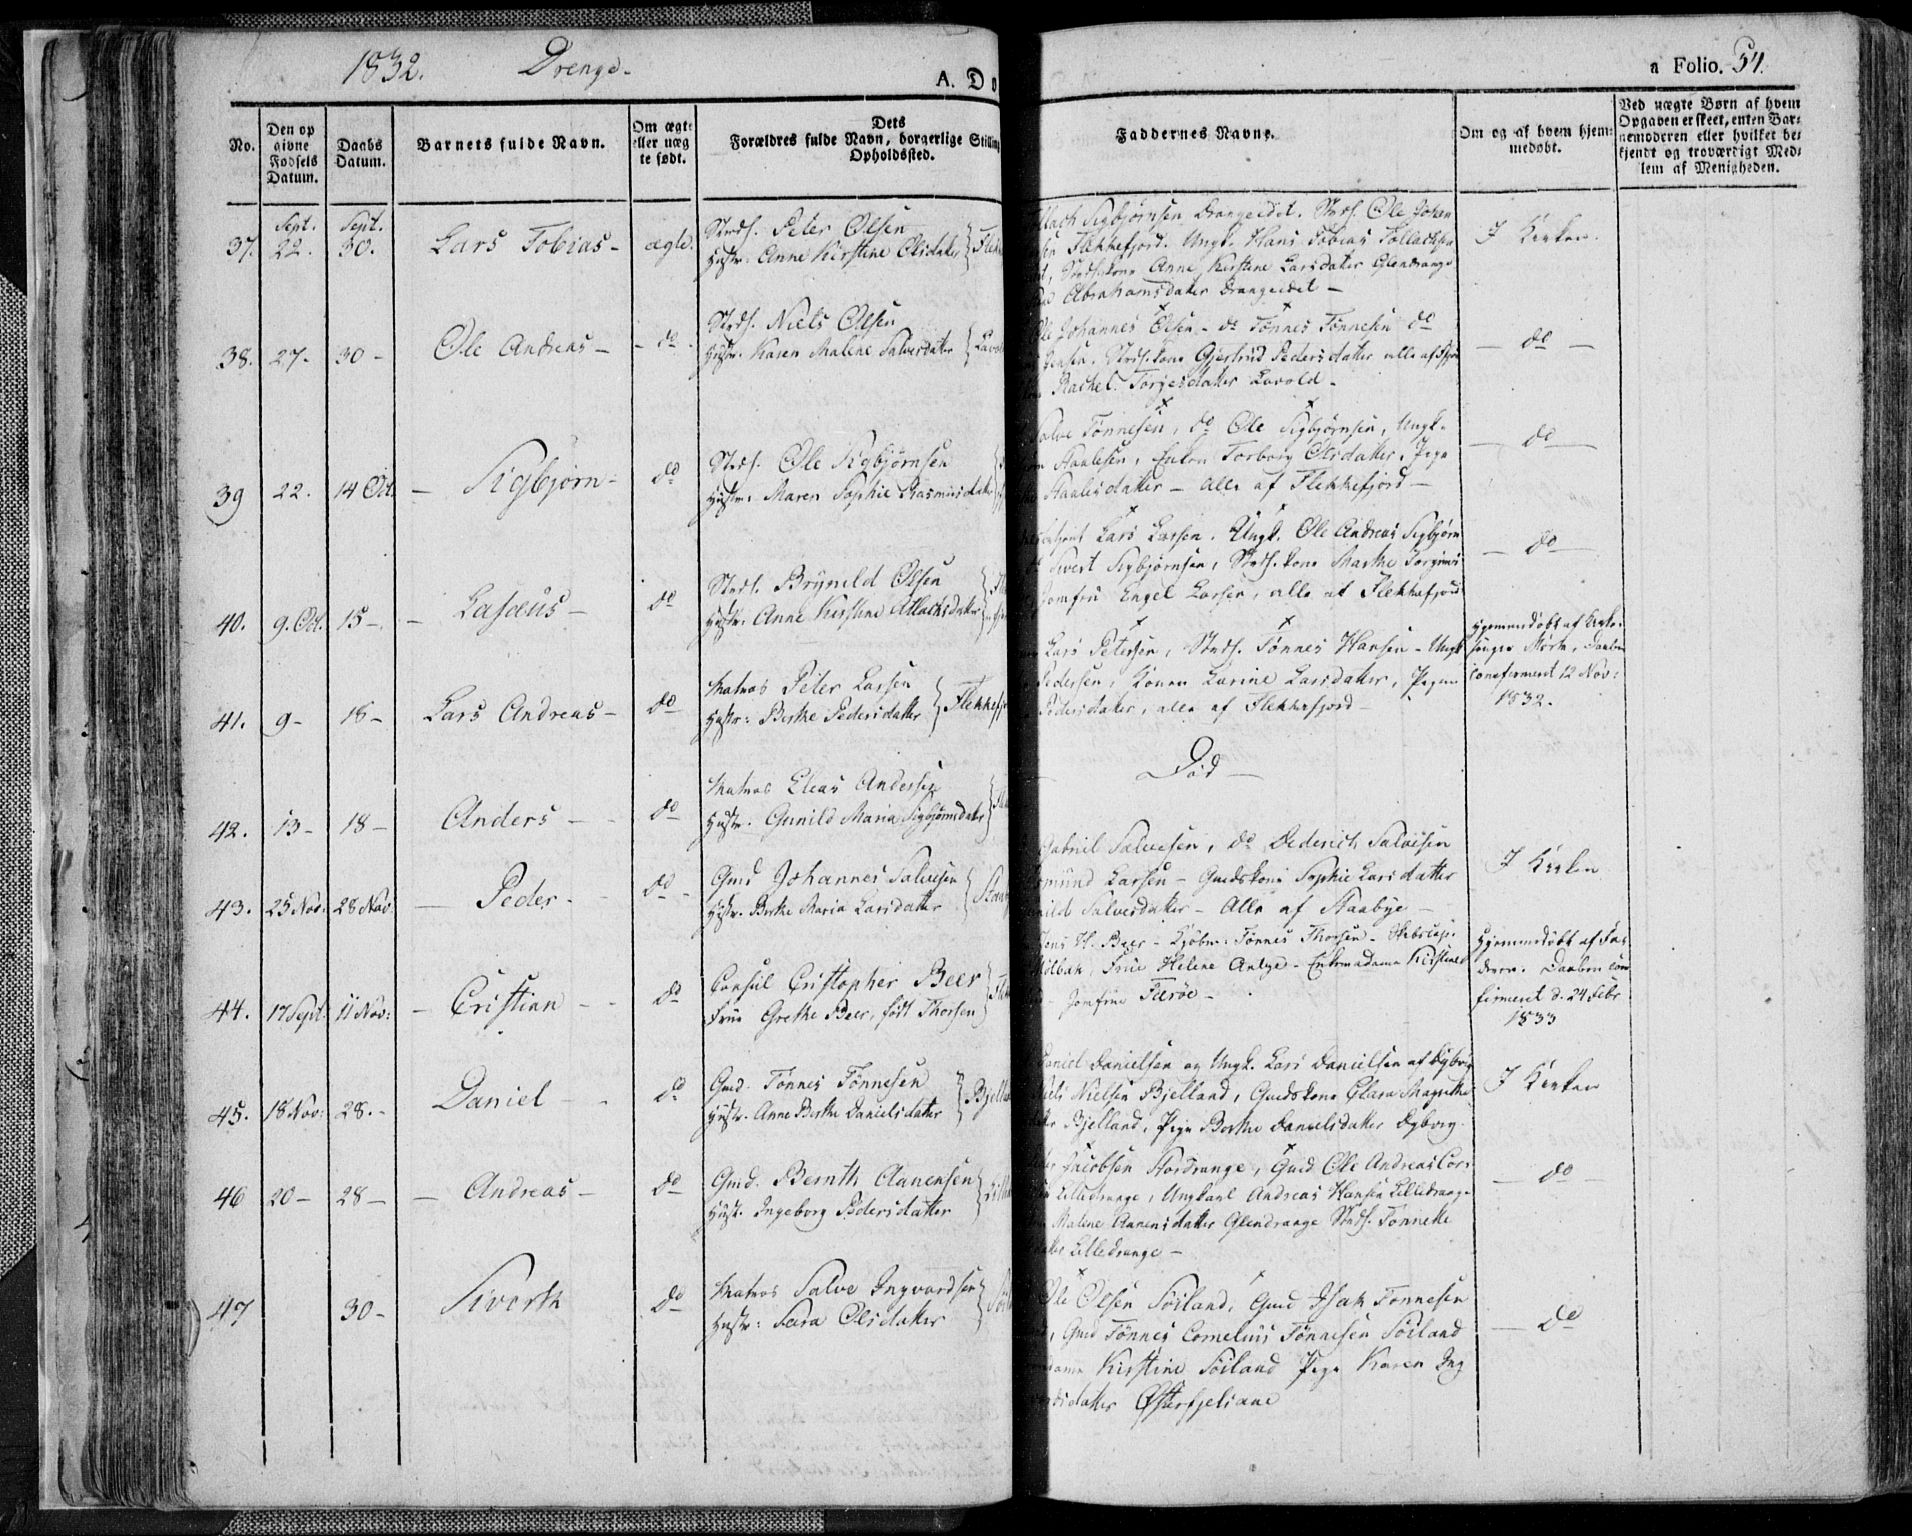 1832.
Drenge.
A. Do
a Folio. 54.
No.
Den op
givne
Fødsels
Datum.
Daabs
Datum.
Barnets fulde Navn.
Om ægt
eller uæg
te født.
Dets
Forældres fulde Navn, borgerlige Stilling
Opholdssted.
Faddernes Navne.
Om og af hvem hjem:
medøbt.
Ved uægte Børn af hvem
Opgaven er skeet, enten Bar:
nemoderen eller hvilket be:
kjendt og troværdigt Med:
lem af Menigheden.
37. Sept. 22. Sept. 30. Lars Tobias - ægte.
Strds. Peter Olsen
Hustr. Anne Kirstine Olsdatter
Sigbjørnsen Drangeidet. Strds. Ole Johan
Flekkefjord. Ungk. Hans Tobias Tollachsen
Strdskone Anne Kirstine Larsdatter Glendrange
Abrahamsdatter Drangeidet -
I Kirken.
38. 27- 30- Ole Andreas - do -
Strds. Niels Olsen
Hustr. Karen Malene Salvesdatter
Ole Johannes Olsen - do Tønnes Tønnesen do
Jensen. Strdskone Gjertrud Pedersdatter alle af
Rachel Tørjesdatter Lavold -
- do -
39 22. 14 Oct. - Sigbjørn - do
Strds. Ole Sigbjørnsen
Hustr: Maren Sophie Rasmusdatter
Salve Tønnesen, do Ole Sigbjørnsen, Ungk.
Staalesen, Enken Torborg Olsdatter, Pige
Staalesdatter - alle af Flekkefjord -
- do -
40. 9. Oct. 15- - Lasæus - do
Strds. Brynild Olsen
Hustr: Anne Kirstine Atlaksdatter
Lars Larsen. Ungk. Ole Andreas Sigbjørn
Sivert Sigbjørnsen, Strdskone Marthe Torgims
Jomfru Engel Larsen, alle af Flekkefjord
- do -
41. 9- 18- Lars Andreas - do
Matros Peter Larsen
Hustr: Berthe Pedersdatter
Flekkefj
Lars Petersen, Strds. Tønnes Hansen - Ungk
Pedersen, Konen Larine Larsdatter, Pigen
Pedersdatter, alle af Flekkefjord -
Hjemmedøbt af Kirke-
sanger Mørk, Daaben
confirmeret 12 Nov:
1832.
42. 13- 18- Anders - do
Matros Elias Andersen
Hustr. Gunild Maria Sigbjørnsdatter
Død -
43. 25 Nov: 28 Nov: - Peder - do -
Gmd Johannes Salvesen
Hustr. Berthe Maria Larsdatter
Gabriel Salvesen, do Dederich Salvesen
Larsen - Gmdskone Sophie Larsdatter
Salvesdatter - Alle af Staabye -
I Kirken
44. 17 Sept: 11 Nov: - Cristian - do
Consul Cristopher Beer
Frue Grethe Beer, født Thorsen
Jens H. Beer - Kjøbm: Tønnes Thorsen - Skibscap.
Frue Helene Antye - Enkemadame Kirstine
- Jomfrue Færøe -
Hjemmedøbt af Fa-
deren. Daaben con
firmeret d. 24 Febr
1833
45. 18 Nov: 28.- Daniel - do
Gmd. Tønnes Tønnesen
Hustr. Anne Berthe Danielsdatter
Daniel Danielsen og Ungk. Lars Danielsen af Dybvig
Niels Nielsen Bjelland, Gmdskone Clara Magrethe
Bjelland, Pige Berthe Danielsdatter Dybvig.
I Kirken
46 20- 28- - Andreas - do
Gmd. Bernth Aanensen
Hust. Ingeborg Pedersdatter
Jacobsen Stordrange, Gmd Ole Andreas Cor:
Lilledrange, Ungkarl Andreas Hansen Lilledrang-
Malene Aanensdatter Glendrange Strds. Tonnette
Lilledrange -
- do -
47 30- Siverth do
Matros Salve Ingvardsen
Hustr: Sara Olsdatter
Ole Olsen Søiland, Gmd Isak Tønnesen
Gmd Tønnes Cornelius Tønnesen Søiland
Kirstine Søiland Pige Karen Ing
datter Østerfjeliane
- do